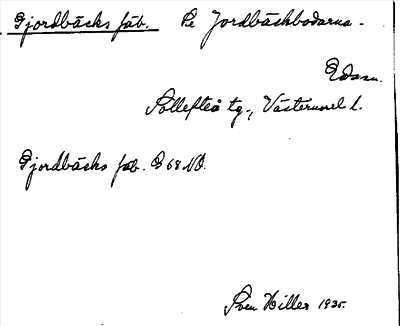 Gjordbäcks fäb. Se Jordbäckbodarna -
Edsm.
Sollefteå tg., Västernorrl l.
Gjordbäcks fäb. G 68 NO.
Sven Hiller 1935.